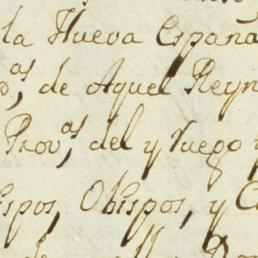 la Nueva España
o,ᵃˢ de Aquel Reyn
Prov,ᵃˢ del y ruego y
ispos, Obispos, y C